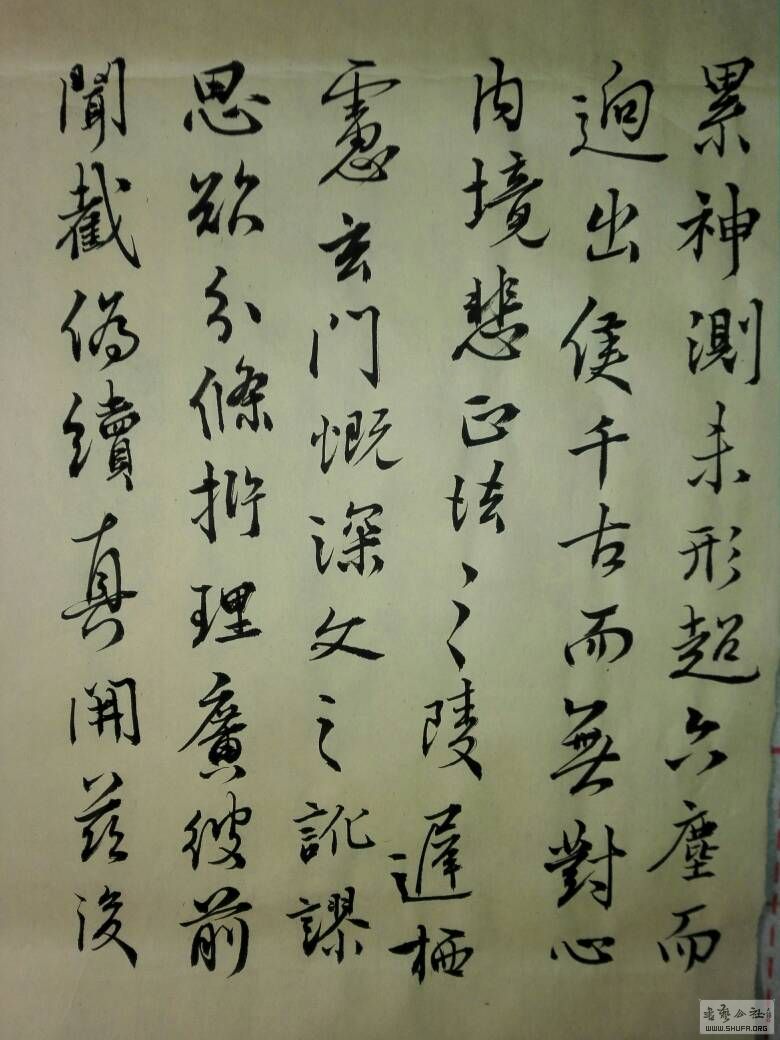 累神測未形超六塵而
迥出侯千古而無對心
内境悲正法之陵遲栖
慮玄門慨深文之訛謬
思欲分條挋理廣彼前
聞截偽續真開茲後
書藝公社
WWW.SHUFA.ORG